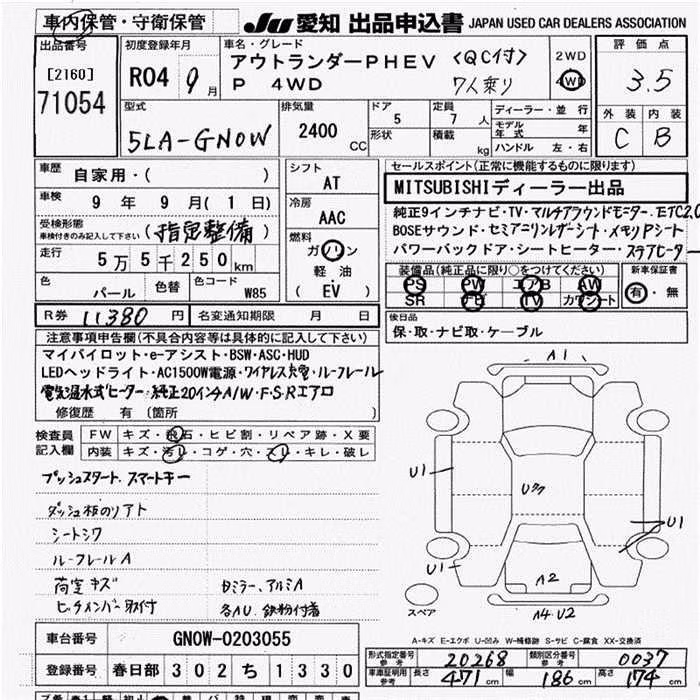 車内保管・守衛保管
JU 愛知 出品申込書 JAPAN USED CAR DEALERS ASSOCIATION
出品番号
[2160]
71054
初度登録年月
R04 9月
車名・グレード
アウトランダーPHEV <QC付>
P 4WD 7人乗り
2WD
4WD
評価点
3.5
外装 内装
C B
型式
5LA-GN0W
排気量
2400 CC
ドア 5
形状
定員 7 人
積載 kg
ディーラー・並行
モデル年式 年
ハンドル 左・右
車歴 自家用・( )
車検 9年 9月( 1日)
受検形態
車検付きのみ記入して下さい (指定整備)
走行 5万5千250km
色 パール 色替 色コード W85
シフト
AT
冷房
AAC
燃料
ガソリン
軽油
( EV )
R券 11380 円 名変通知期限 月 日
セールスポイント(正常に機能するものに限ります)
MITSUBISHIディーラー出品
純正9インチナビ・TV・マルチアラウンドモニター・ETC2.0
BOSEサウンド・セミアニリンレザーシート・メモリPシート
パワーバックドア・シートヒーター・ステアヒーター
装備品(純正品に限り○をつけてください)
PS PW エアB AW
SR ナビ TV カワシート
新車保証書
有・無
後日品
保・取・ナビ取・ケーブル
注意事項申告欄(不具合内容等は具体的に記入して下さい)
マイパイロット・e-アシスト・BSW・ASC・HUD
LEDヘッドライト・AC1500W電源・ワイヤレス充電・ルーフレール
電気温水式ヒーター・純正20インチA/W・F・S・Rエアロ
修復歴 有 (箇所
検査員記入欄
FW キズ・飛石・ヒビ割・リペア跡・X要
内装 キズ・汚レ・コゲ・穴・スレ・キレ・破レ
プッシュスタート、スマートキー
ダッシュ板のリアト
シートシワ
ルーフレールA
荷室キズ Bミラー、アルミA
ヒッチメンバー取付 各AU、鉄粉付着
A1
U1
Uク
U1
U1
A2
A4・U2
スペア
A-キズ E-エクボ U-凹み W-補修跡 S-サビ C-腐食 XX-交換済
車台番号 GN0W-0203055
登録番号 春日部 302 ち 1330
形式指定番号 参考 20268 類別区分番号 参考 0037
車庫証明用 参考 長さ 471cm 幅 186cm 高さ 174cm